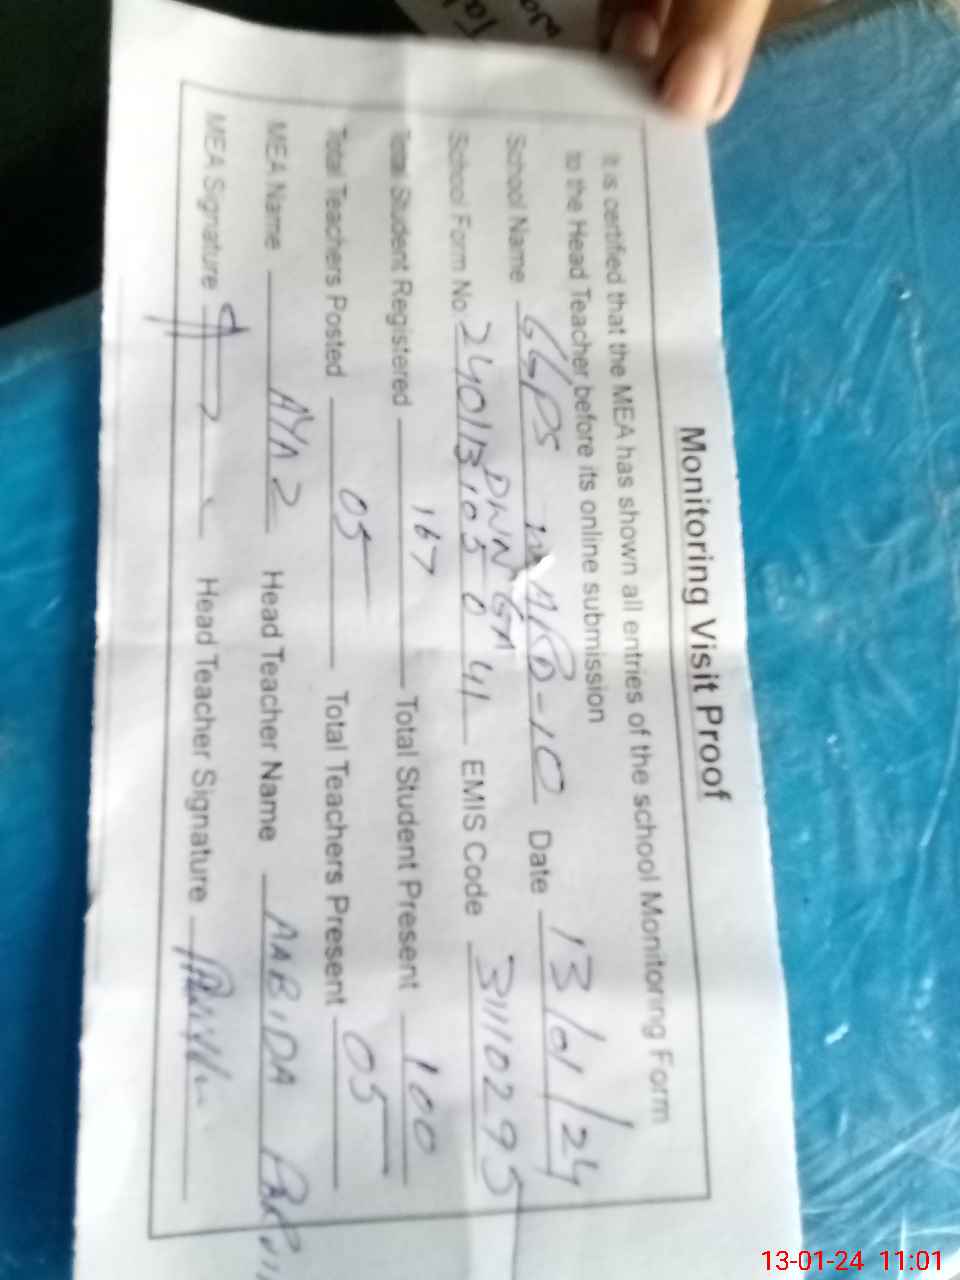 Monitoring Visit Proof
It is certified that the MEA has shown all entries of the school Monitoring Form
to the Head Teacher before its online submission
School Name GGPS WARD-10 Date 13/01/24
DNN GM
School Form No. 240113105041 EMIS Code 31110295
Total Student Registered 167 Total Student Present 100
Total Teachers Posted 05 Total Teachers Present 05
MEA Name AYAZ Head Teacher Name AABIDA
MEA Signature Head Teacher Signature
13-01-24 11:01